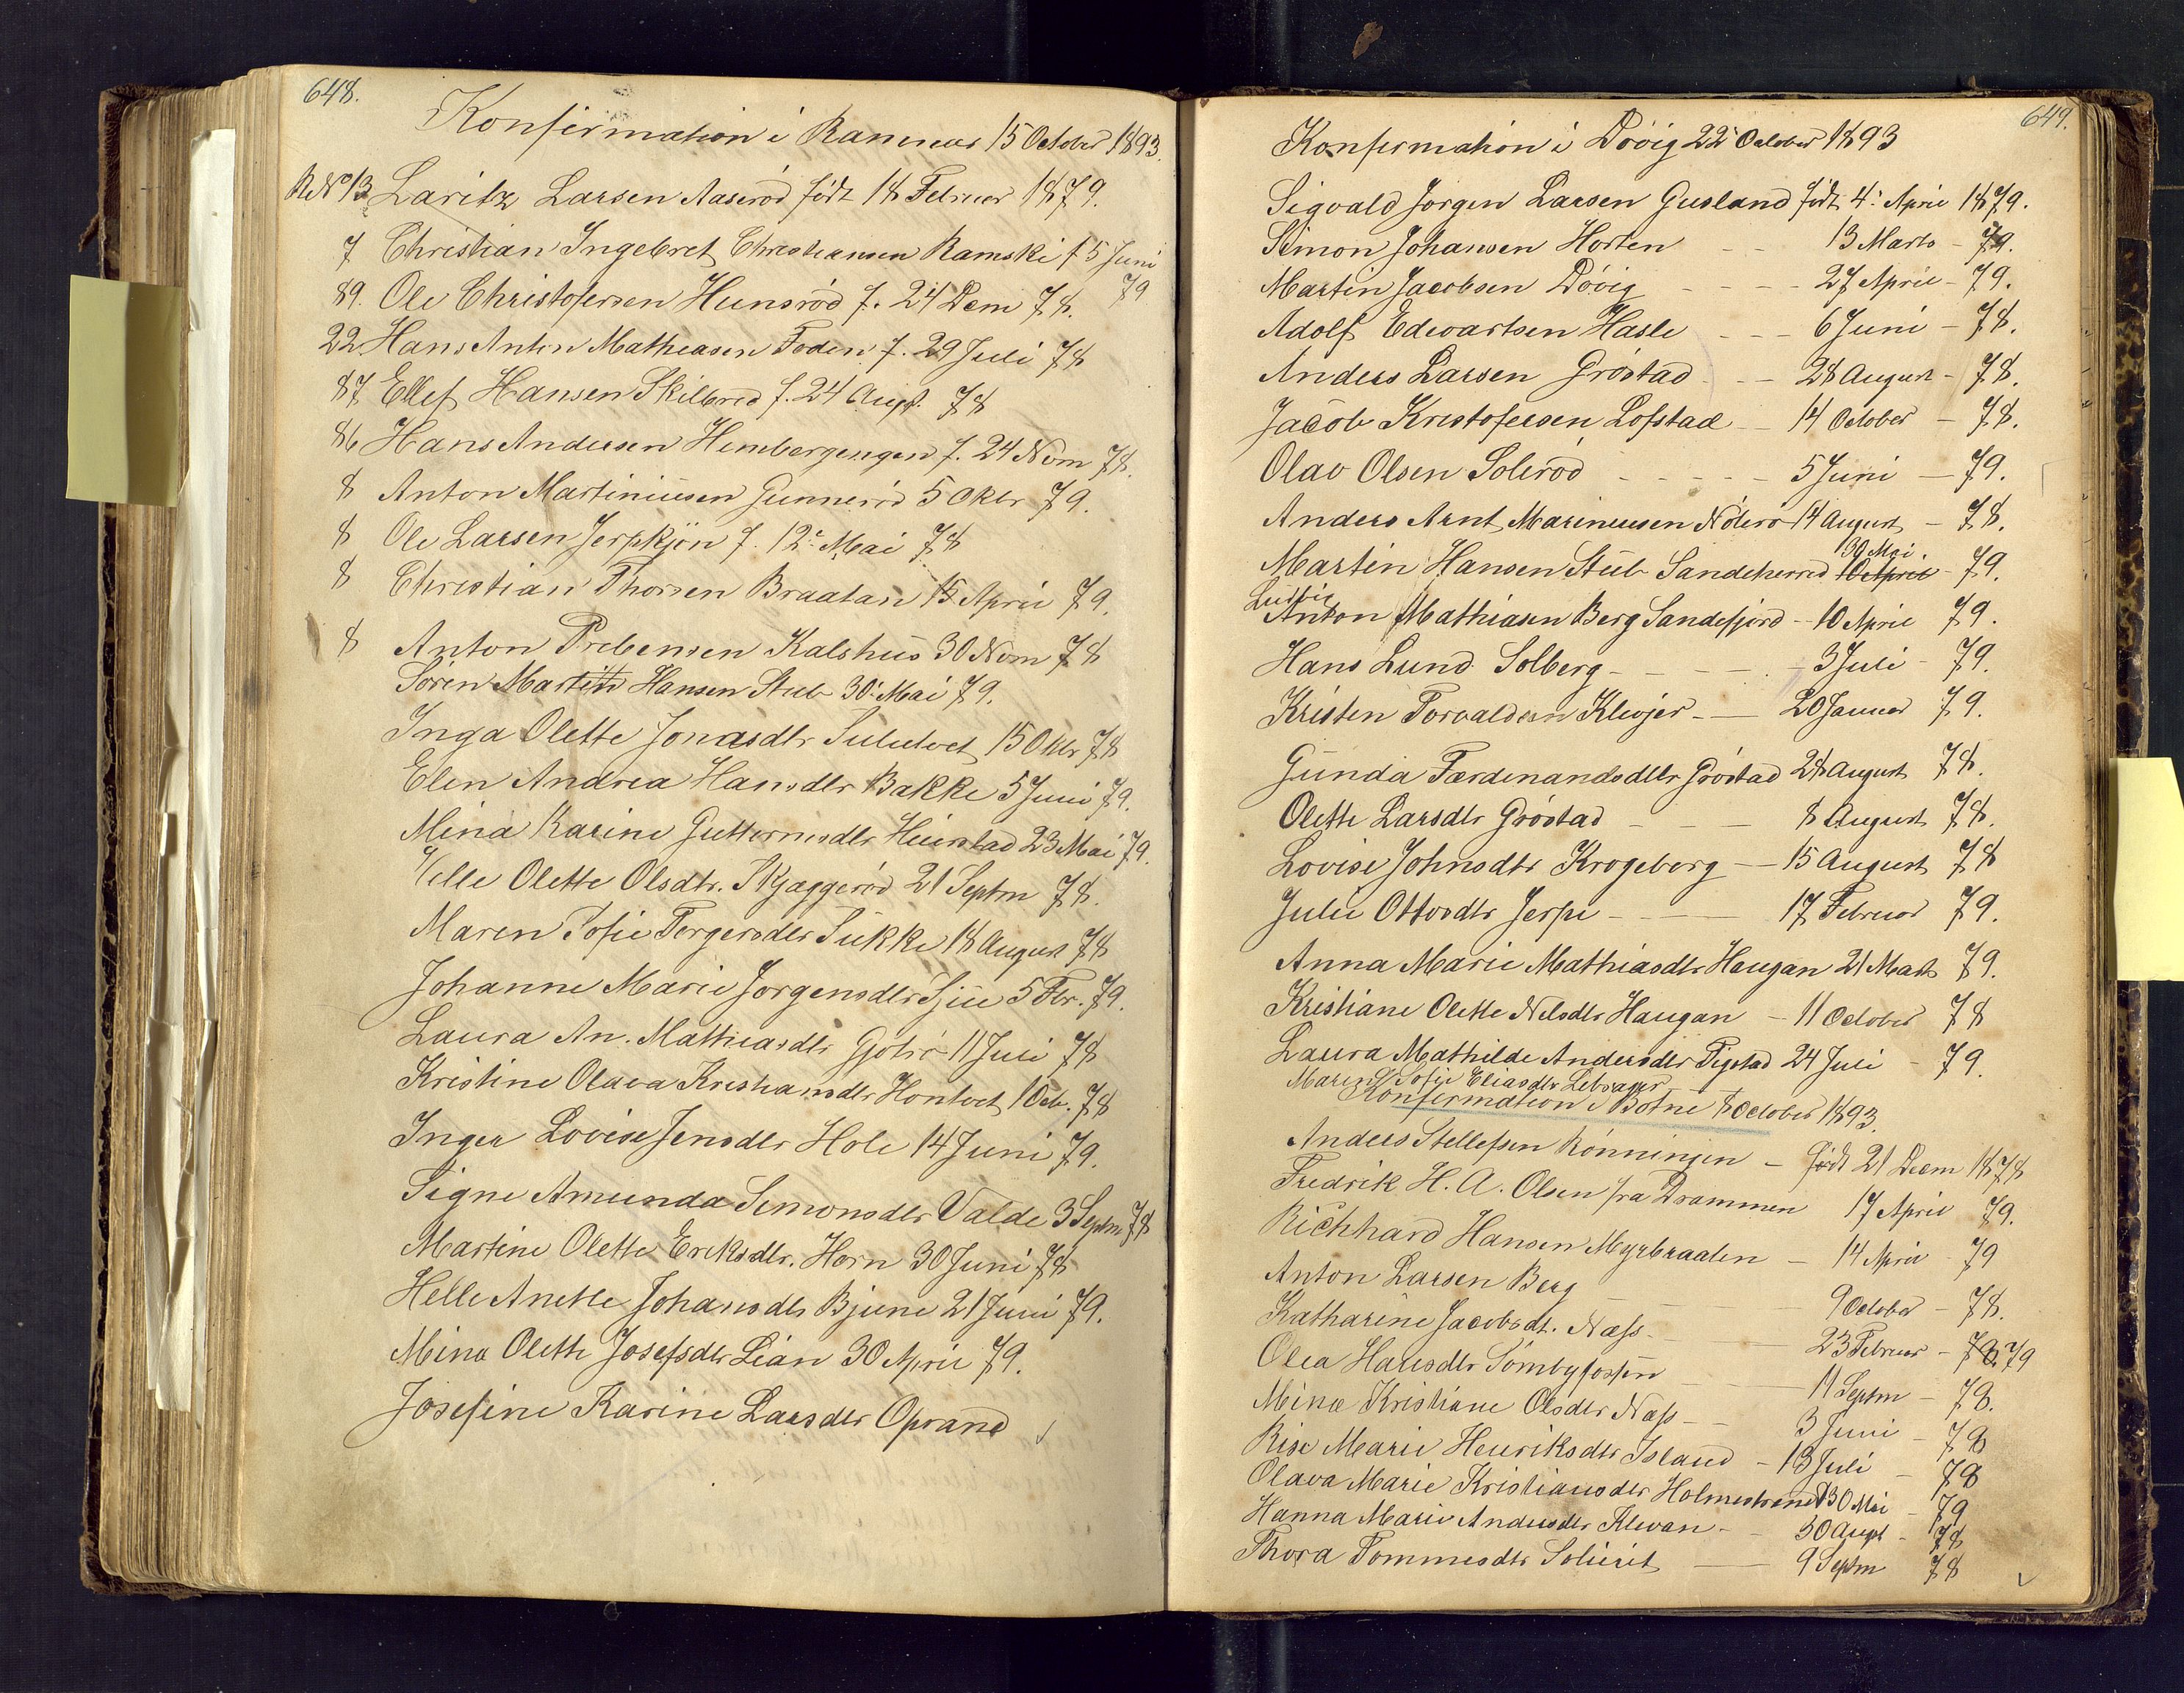 648.
Konfirmation i Ramnæs 15 October 1893.
R. No 13 Laritz Larsen Aaserød født 18 Februar 1879.
7 Christian Ingebret Christiansen Ramski f 5 Juni 79
89. Ole Christofersen Hunsrød f. 24 Dem 78.
22 Hans Anton Mathiasen Foden f. 29 Juli 78
87 Ellef Hansen Skilbred f. 24 Augt. 78
86 Hans Andersen Hembergengen f. 24 Novm 78.
8 Anton Martiniusen Gunnerød 5 Oktr 79.
8 Ole Larsen Jerpkjøn f. 12te Mai 78
8 Christian Thorsen Braatan 15 April 79.
8 Anton Prebensen Kalshus 30 Novm 78
Søren Martin Hansen Stub 30: Mai 79.
Inga Olette Jonasdtr 15 Oktr 78
Elen Andrea Hansdtr Bakke 5 Juni 79.
Mina Karine Guttormsdtr Heierstad 23 Mai 79.
Helle Olette Olsdtr. Skjæggerød 21 Septm 78.
Maren Sofie Torgersdtr Sukke 18 August 78
Johanne Marie Jørgensdtr 5 Fbr. 79.
Laura An. Mathiasdtr 11 Juli 78
Kristine Olava Kristiansdtr Hontvet 1 Octr. 78
Inger Lovise Jensdtr Hole 14 Juni 79.
Signe Amunda Simonsdtr Valde 3 Septm 78
Martine Olette Eriksdtr. Horn 30 Juni 78
Helle Anette Johansdtr Bjune 21 Juni 79.
Mina Olette Josefsdtr Lian 30 April 79.
Josefine Karine Larsdtr Oprand
649.
Konfirmation i Døvig 22 October 1893
Sigvald Jørgen Larsen Gusland født 4: April 1879.
Simon Johansen Horten - - 13 Marts - 79.
Martin Jacobsen Døvig - - - - 27 April - 79.
Adolf Edvartsen Hasle - - - 6 Juni - 78.
Anders Larsen Grøstad - - - 28 August - 78.
Jacob Kristofersen Lofstad - - 14 October - 78.
Olav Olsen Solerød - - - - - 5 Juni - 79.
Anders Arnt Mariniusen Nøterø - 14 August - 78.
30 Mai.
Martin Hansen Stub Sandeherred 10 April - 79.
Ludvig
Anton Mathiasen Berg Sandefjord - 10 April 79.
Hans Lund Solberg - - - - 3 Juli - 79.
Kristen Torvaldsen Klevjer - - 20 Januar 79.
Gunda Færdenandsdtr Grøstad 28 August 78.
Olette Larsdtr Grøstad - - 8 August 78.
Lovise Johnsdtr Krogeborg - 15 August 78
Julie Ottosdtr Jerpe - - - 17 Februar 79.
Anna Marie Mathiasdtr Haugan 21 Marts 79.
Kristiane Olette Nilsdtr Haugan - 11 October 78
Laura Mathilde Andersdtr Pigstad 24 Juli - 79.
Maren Sofie Eliasdtr Lebsager
Konfirmation i Botne 8 October 1893.
Anders Stellefsen Rønningen - født 21 Decm 1878
Fredrik H. A. Olsen fra Drammen 17 April 79.
Richhard Hansen Myrbraaten - 14 April - 79
Anton Larsen Berg - - 9 October - 78.
Katharine Jacobsdt. Næss - - 23 Februar - 78. 79
Olea Hansdtr Sømbyfossen - - 11 Septm - 78.
Mina Kristiane Olsdtr Næss - - 3 Juni - 78
Rise Marie Henriksdtr Island - 13 Juli - 78
Olava Marie Kristiansdtr Holmestrand 30 Mai - 79
Hanna Marie Andersdtr Klevan - - 30 Augt - 78
Thora Tommesdtr - 9 Septm 78